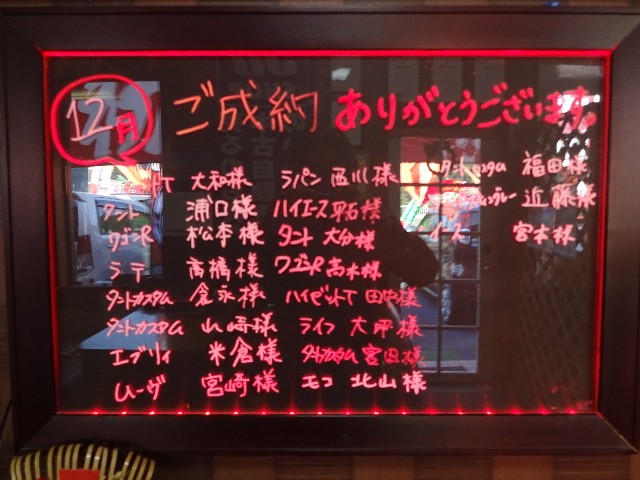 12月 ご成約 ありがとうございます。
T 大和様
タント 浦口様
ワゴンR 松本様
ラテ 高橋様
タントカスタム 倉永様
タントカスタム 山崎様
エブリィ 米倉様
ムーヴ 宮崎様
ラパン 西川様
ハイエース 平石様
タント 大分様
ワゴンR 高木様
ハイゼットT 田中様
ライフ 大坪様
タントカスタム 宮田様
モコ 北山様
タントカスタム 福田様
近藤様
イース 宮本様